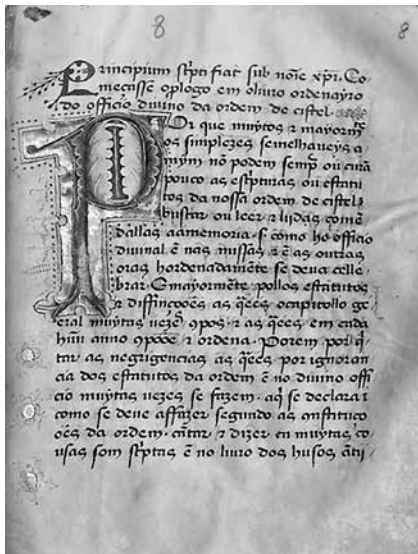 8 8
Principium scpti fiat sub noie xpi. Co
meçasse o prologo em o liuro ordenayro
do officio diuino da ordem de cistel
POr que muytos e mayormẽ
os simplezes semelhaueys a
mym nõ podem semp ou curã
pouco as escpturas ou estatu
tos da nossa ordem de cistel
buscar ou leer e lidas comẽ
dallas aa memoria. s como ho officio
diuinal e nas missas e e as outras
oras hordenadamẽte se deua celle
brar. E mayormẽte pollos estatutos
e diffinçoões as q̃ẽes o capitollo ge
eral muytas vezes 9pos. e as q̃ẽes em cada
hũu anno 9põe e ordena. Porem por q̃
tar as negrigencias as q̃ẽes por ignoran
cia dos estatutos da ordem e no diuino offi
cio muytas vezes se fazem. aq̃ se declara
como se deve affazer segundo as
oões da ordem. cãtar e dizer en muytas co
usas som scptas e no liuro dos husos ãtii